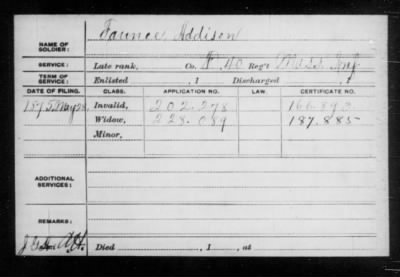 NAME OF SOLDIER: Faunce Addison
SERVICE: Late rank, Co. F. 40 Reg't Mass Inf
TERM OF SERVICE: Enlisted , 1 Discharged , 1
DATE OF FILING. CLASS. APPLICATION NO. LAW. CERTIFICATE NO.
1875 May 28, Invalid, 202.278 166.893
Widow, 228.089 187.885
Minor,
ADDITIONAL SERVICES:
REMARKS:
Died , 1 , at